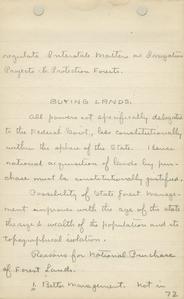 regulate Interstate Matters as Irrigation
Projects & Protection Forests.
BUYING LANDS.
All powers not specifically delegated
to the Federal Gov't., lies constitutionally
within the sphere of the State. Hence
national acquisition of lands by pur-
chase must be constitutionally justified.
Possibility of State Forest Manage-
ment improves with the age of the state
the age & wealth of the population and its
topographical isolation.
Reasons for National Purchase
of Forest Lands.
1. Better Management. Not in
72